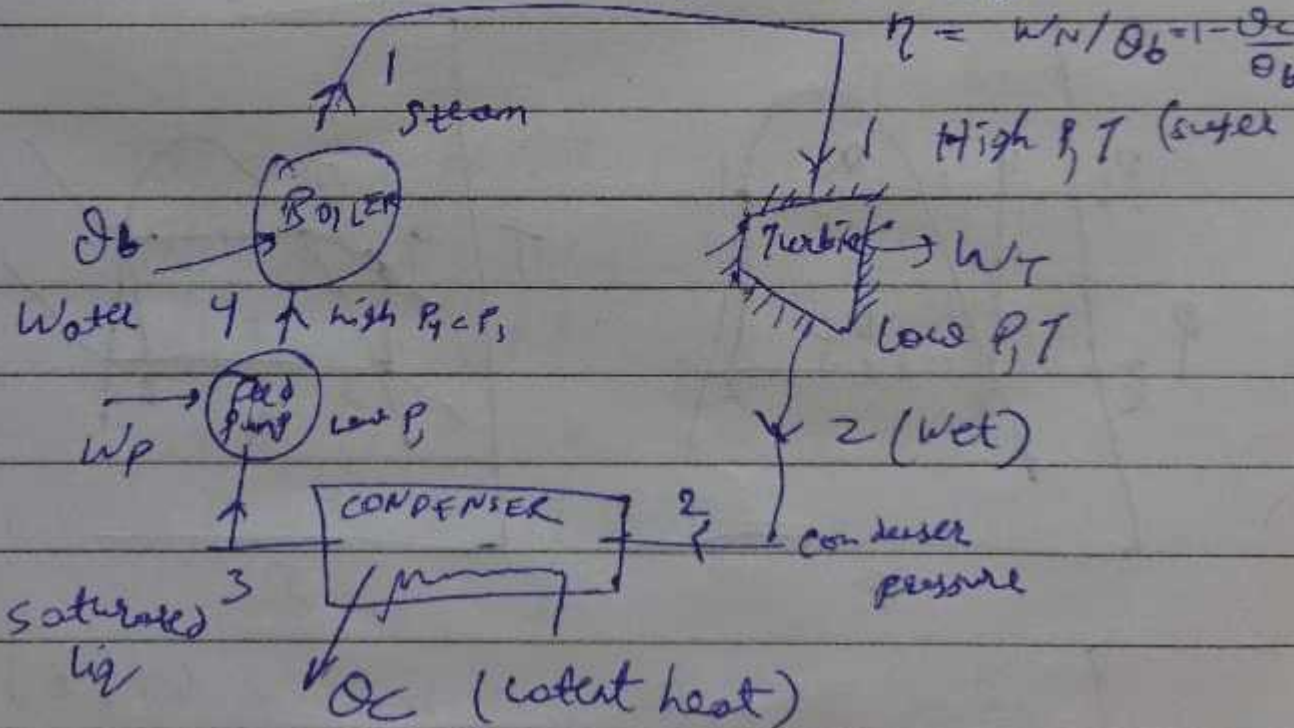 η = WN/Qb = 1 - Qc/Qb
1
steam
1 High P, T (super
BOILER
Qb
Turbine
WT
Water 4 high P4
Low P, T
feed
pump
Low P,
Wp
2 (Wet)
CONDENSER
2
condenser
pressure
3
saturated
liq
Qc (latent heat)